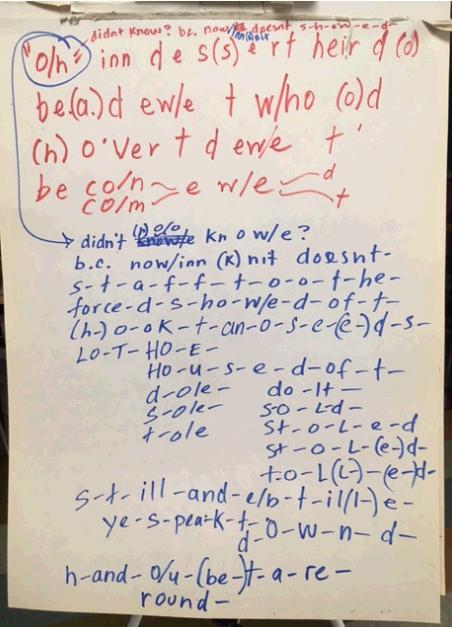 didnt know? bc. now/ doesnt s-h-ow-e-d-
"o/h" inn d e s(s) e rt heir d (o)
be.(a.)d ew/e t w/ho (o)d
(h) o'ver t d ew/e t'
be co/n e w/e d
co/m t
didn't (k) o/o kn o w/e?
b.c. now/inn (k) nit doesnt-
s-t-a-f-f-t-o-o-t-he-
force-d-s-ho-w/e-d-of-t-
(h-) o-ok-t-an-o-s-e-(e-)d-s-
LO-T-HO-E-
HO-u-s-e-d-of-t-
d-ole- do-lt-
s-ole- so-Ld-
t-ole st-o-L-e-d
st-o-L-(e-)d-
t-o-L(L-)-(e-)d-
s-t-ill-and-e/b-t-il/l-)e-
ye-s-peak-t-
d-o-w-n-d-
h-and-o/u-(be-)t-a-re-
round-